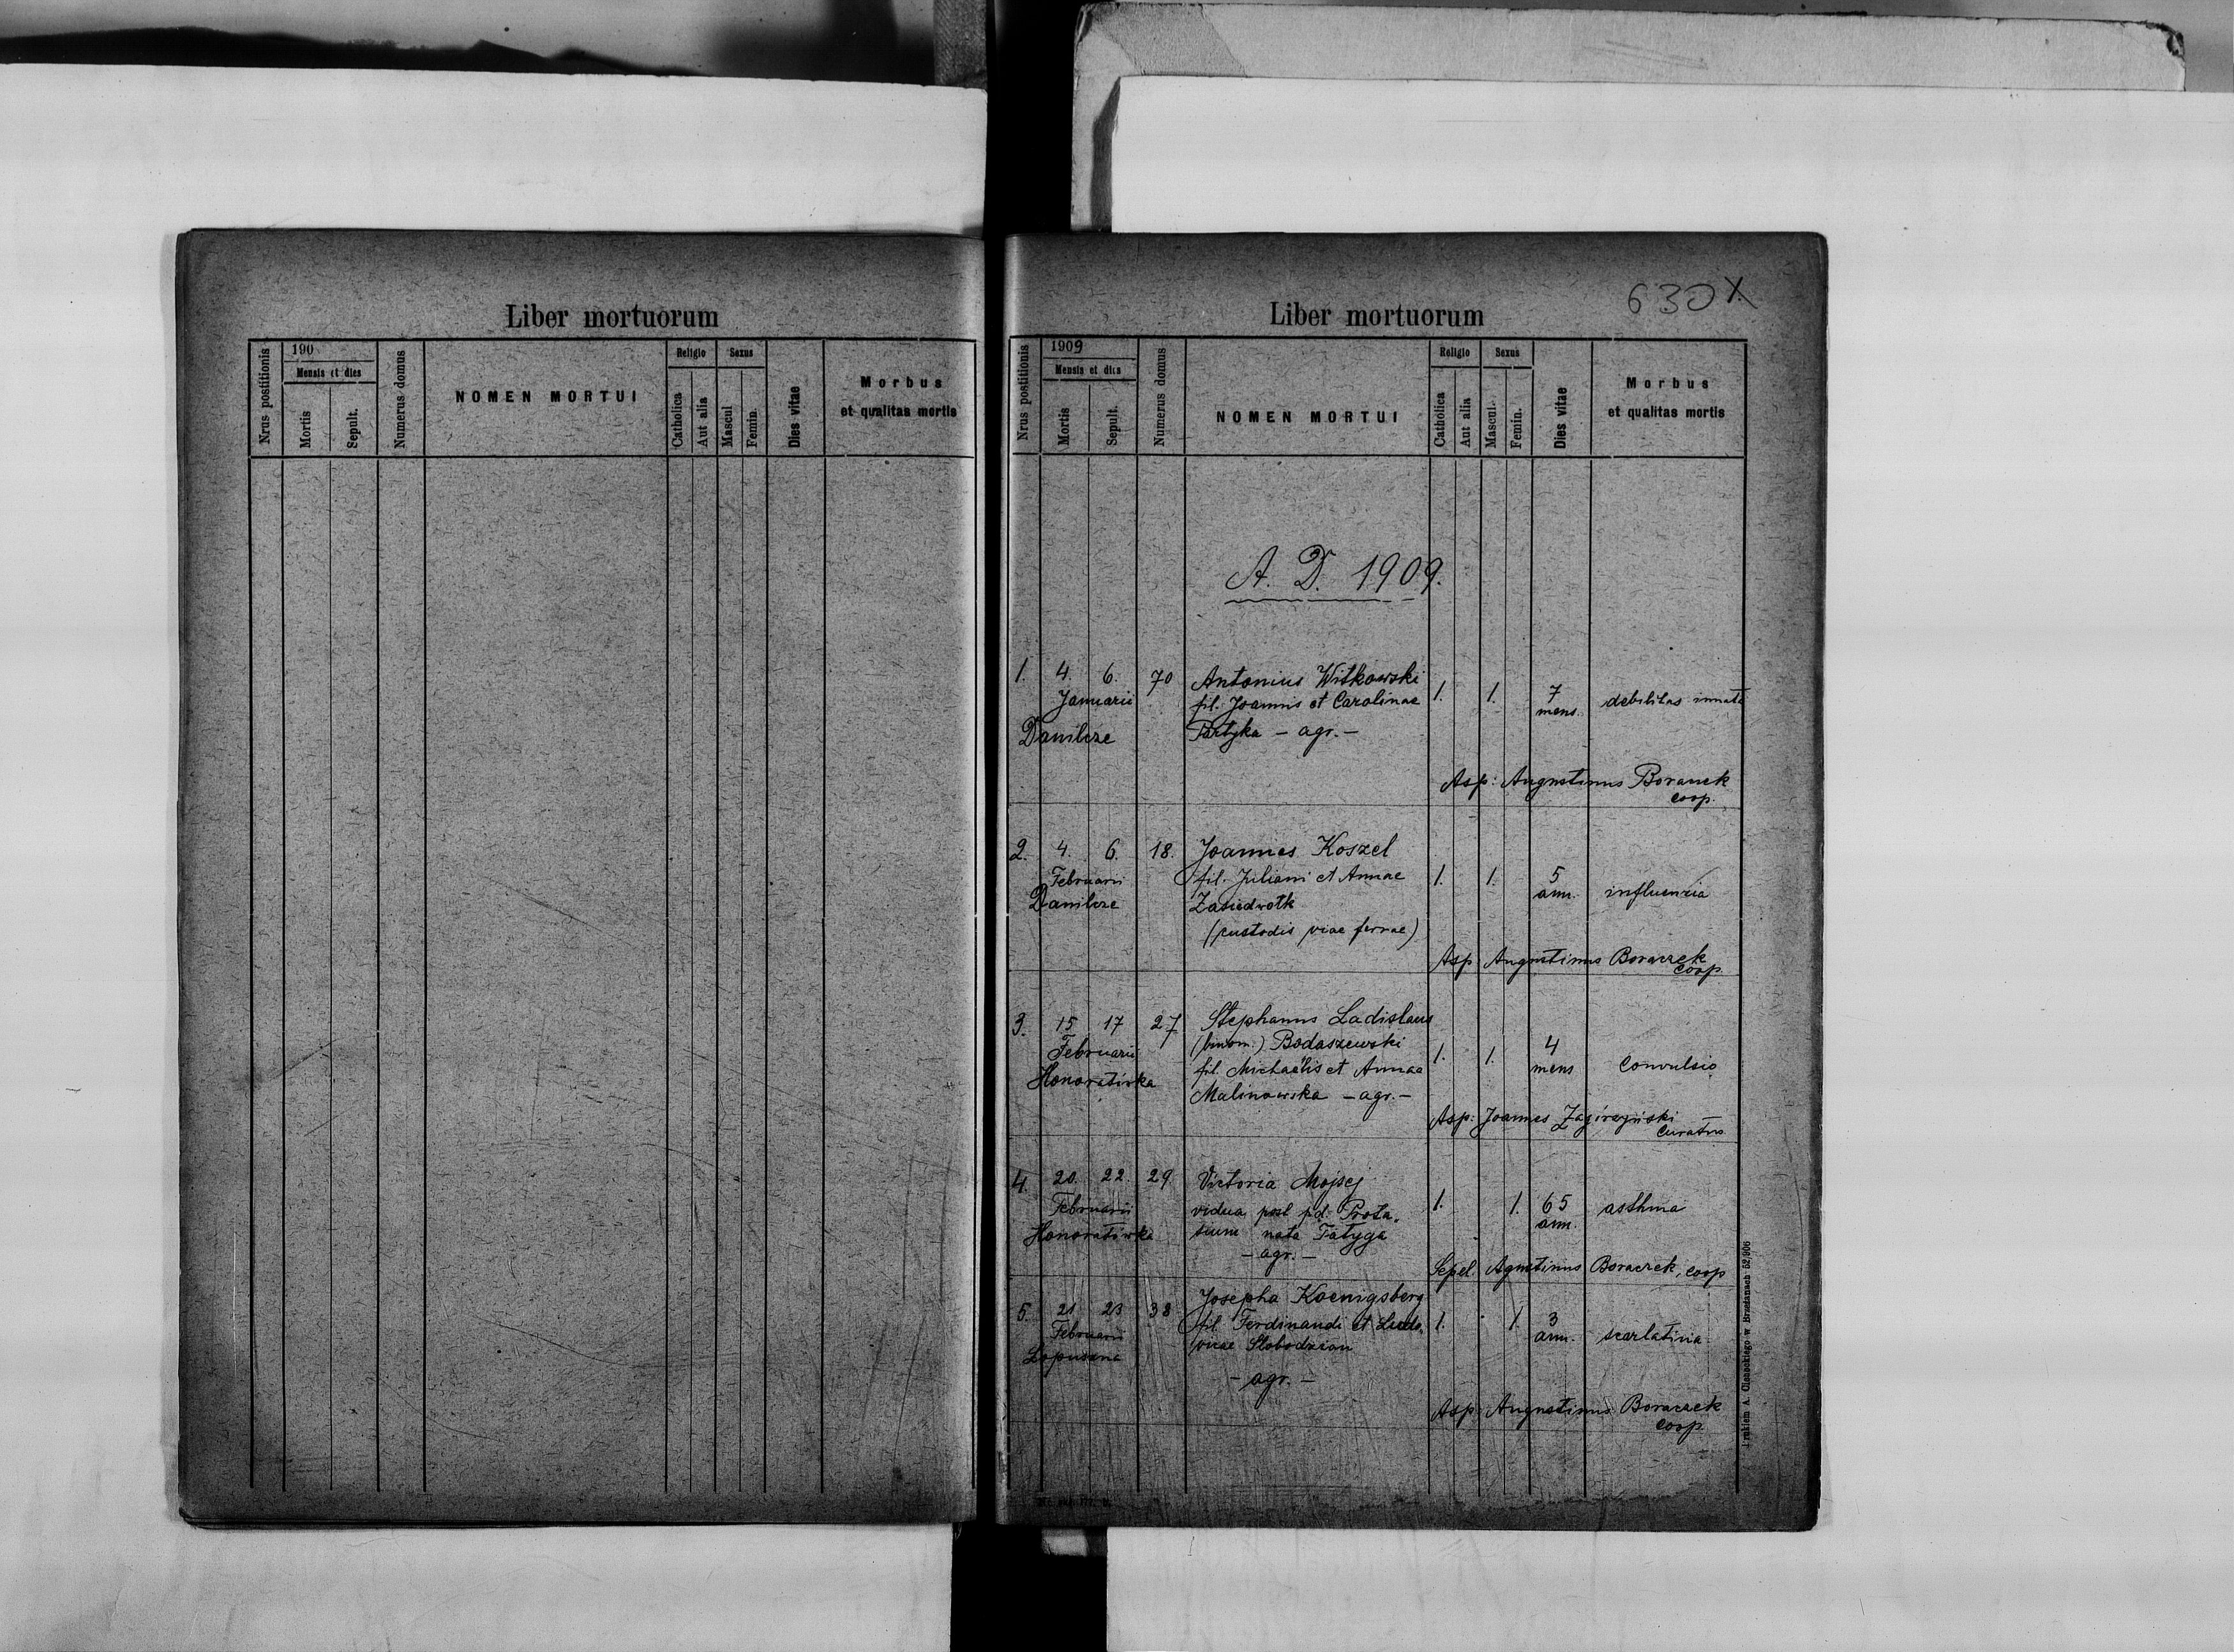 Liber mortuorum
Nrus postitionis
190
Mensis et dies
Mortis
Sepult.
Numerus domus
NOMEN MORTUI
Religio
Catholica
Aut alia
Sexus
Mascul
Femin.
Dies vitae
Morbus
et qualitas mortis
630 X
Liber mortuorum
Nrus postitionis
1909
Mensis et dies
Mortis
Sepult.
Numerus domus
NOMEN MORTUI
Religio
Catholica
Aut alia
Sexus
Mascul.
Femin.
Dies vitae
Morbus
et qualitas mortis
A. D. 1909.
1. 4. 6. 70 Antonius Witkowski
Januarii fil. Joannis et Carolinae 1. 1. 7 mens. debilitas innata
Danilcze Partyka - agr. -
Asp: Augustinus Boraczek
coop.
2. 4. 6. 18. Joannes Koszel
Februarii fil. Juliani et Annae 1. 1. 5 ann. influenzia
Danilcze
(custodis viae ferrae)
Asp: Augustinus Boraczek
coop.
3. 15 17 27 Stephanus Ladislaus
Februarii (binom.) Bodaszewski
Honoratówka fil. Michaëlis et Annae 1. 1. 4 mens convulsio
Malinowska - agr. -
Asp: Joannes
curatus
4. 20. 22. 29. Victoria Mojsej
Februarii vidua post pd. Prota- 1. 1. 65 ann. asthma
Honoratówka sium nata Fatyga
- agr. -
Sepel. Agustinus Boraczek, coop
5. 21 23 38 Josepha Koenigsberg
Februarii fil. Ferdinandi et Ludo- 1. 1. 3 ann. scarlatina
Łopuszna vicae Słobodzian
- agr. -
Asp: Augustinus Boraczek
coop.
Drukiem A. Cieseckiego w Brzeżanach 52/906